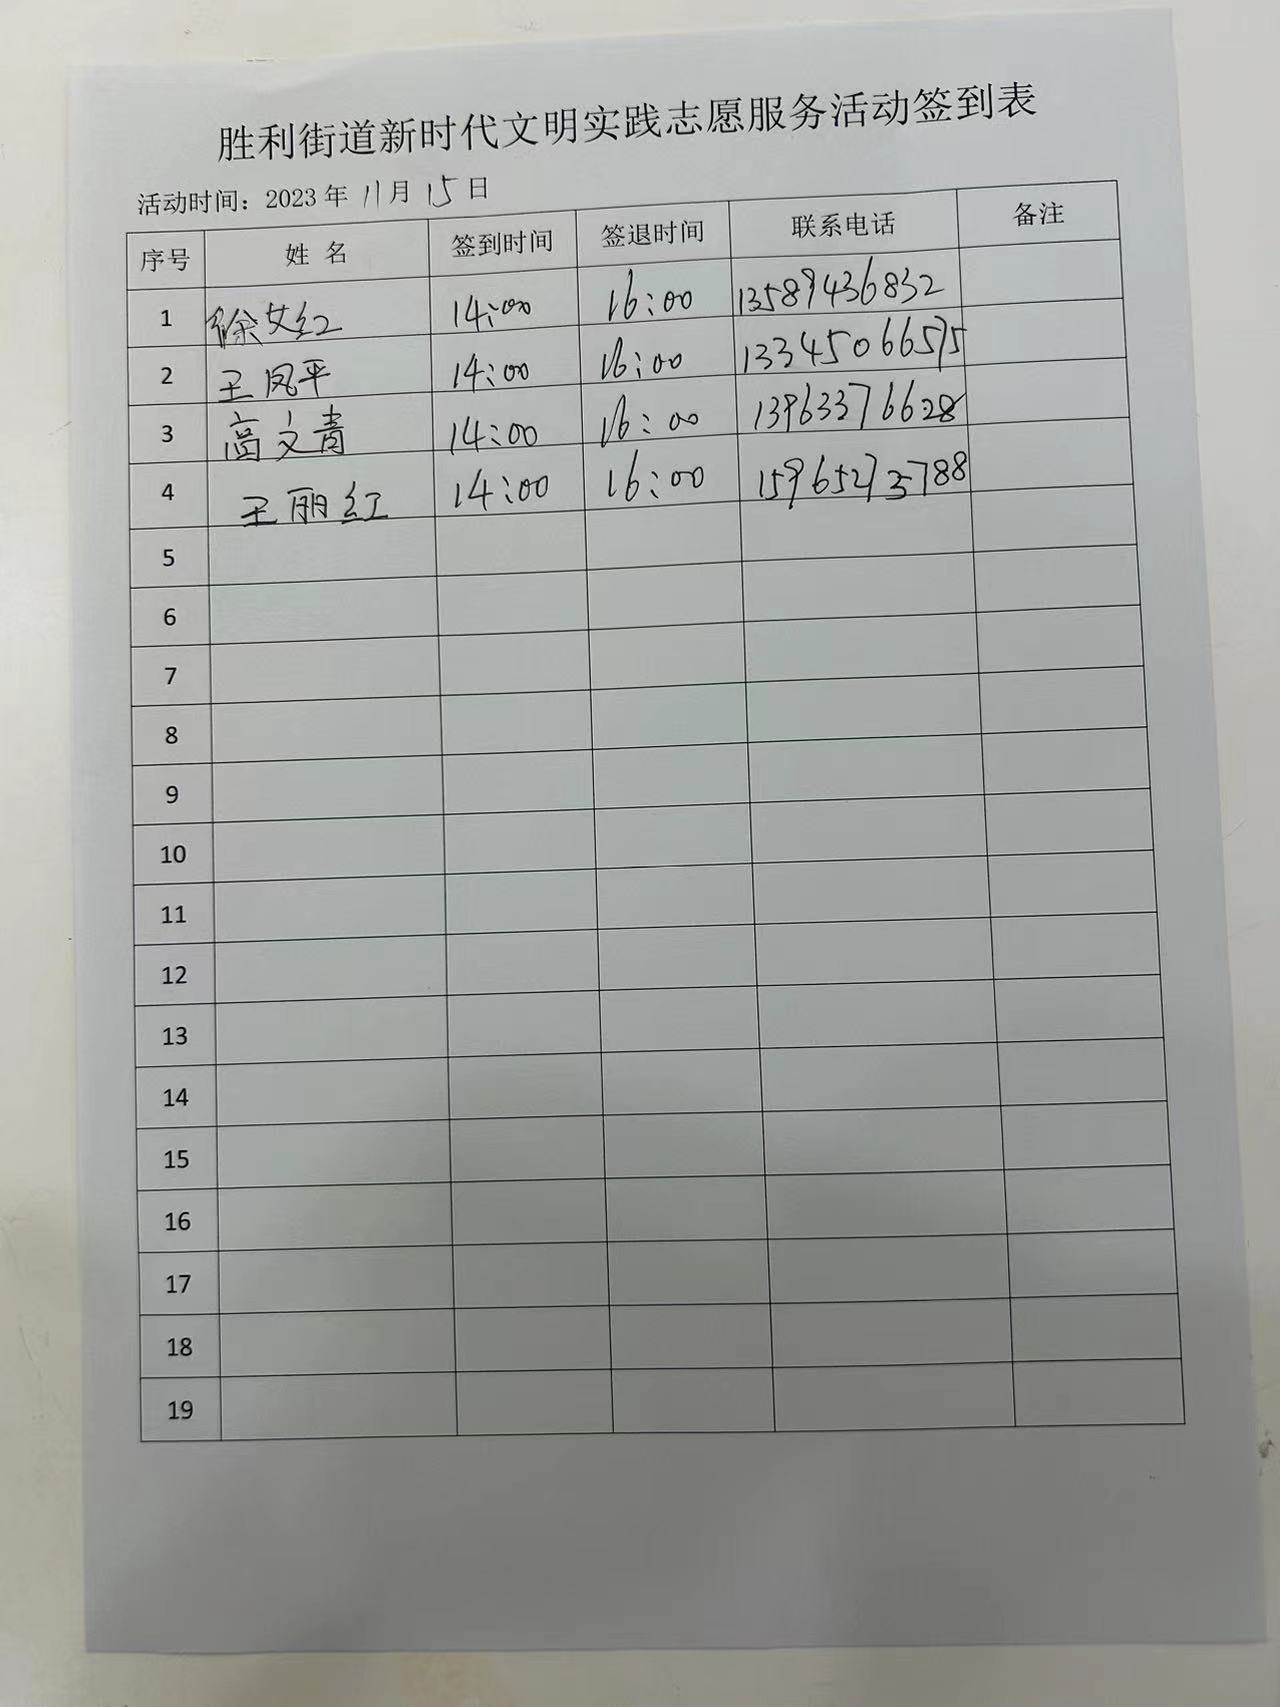 胜利街道新时代文明实践志愿服务活动签到表
活动时间：2023年 11月 15日
序号 姓 名 签到时间 签退时间 联系电话 备注
1 徐女红 14:00 16:00 13589436832
2 王凤平 14:00 16:00 13345066575
3 高文青 14:00 16:00 13963376628
4 王丽红 14:00 16:00 15965273788
5
6
7
8
9
10
11
12
13
14
15
16
17
18
19